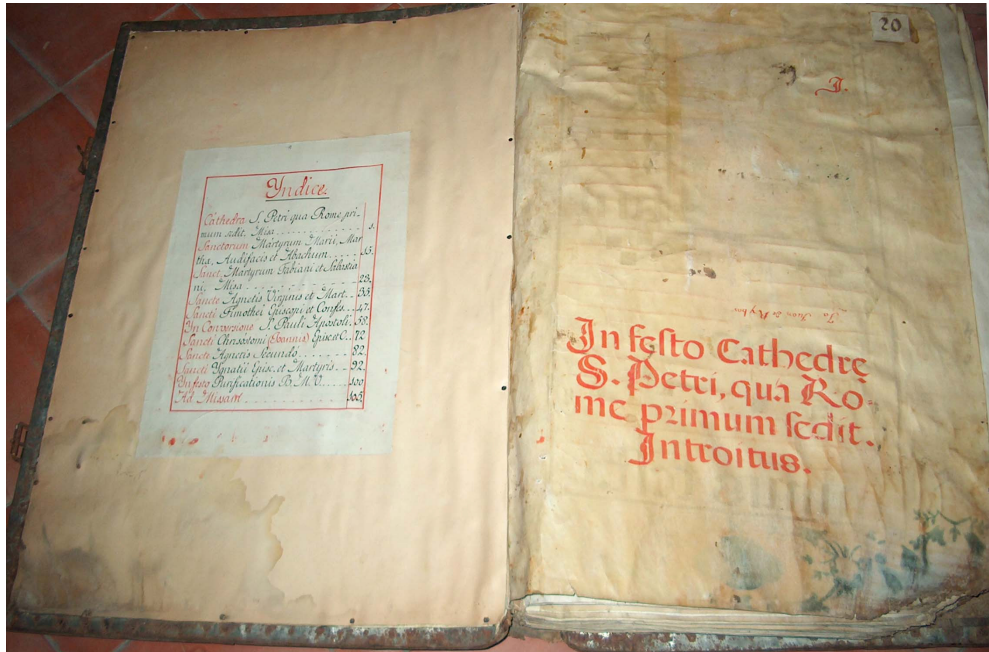 Yndice.
Cathedra S. Petri qua Rome pri-
mum sedit, Misa 1.
Sanctorum Martyrum Marii, Mar
tha, Audifacis et Abachum 15.
Sanct. Martyrum Fabiani et Sebastia
ni, Misa 28.
Sancte Agnetis Virginis et Mart. 35.
Sancti Timothei Episcopi et Confes. 47.
In Conversione S. Pauli Apostoli. 58.
Sancti Chrisostomi (Joannis) Epis et C. 72
Sancte Agnetis Secundo 82.
Sancti Ygnatii Episc. et Martyris 92.
In festo Purificationis B. M. V. 100
Ad Missam 105.
20
I.
In festo Cathedre
S. Petri, quà Ro-
me primum sedit.
Introitus.